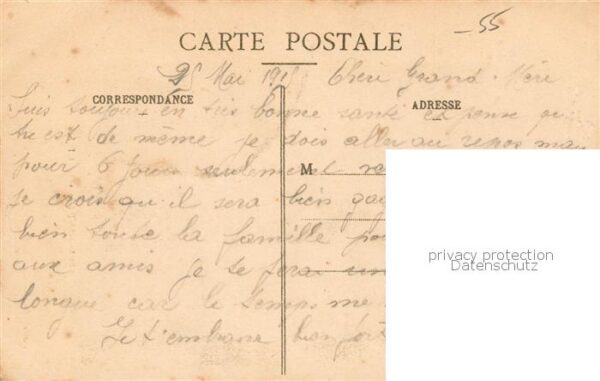 55
CARTE POSTALE
25 Mai 191 Cheri Grand-Mère
CORRESPONDANCE
ADRESSE
Suis toujours en très bonne santé et pense
est de même je dois aller au repos mais
pour 6 jours seulement
M
je crois qu'il sera bien
bien toute la famille
aux amis je te ferai
longue car le temps me
Je t'embrasse bien fort
privacy protection
Datenschutz